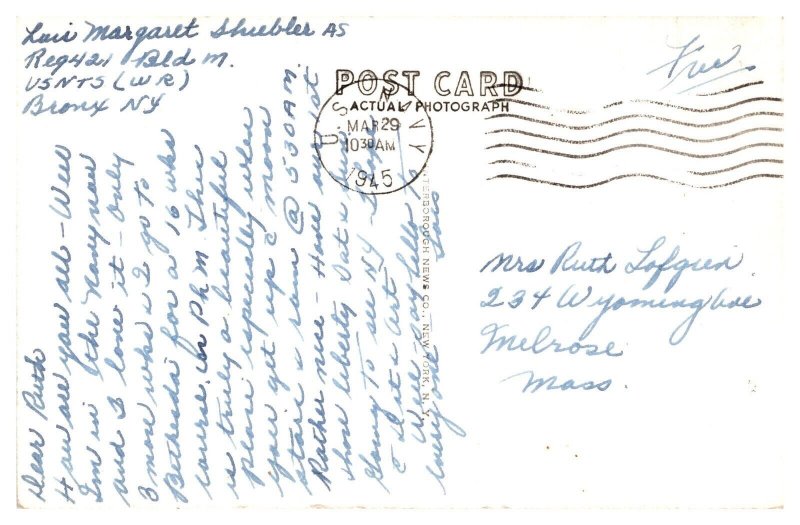 Lois Margaret Shuebler AS
Reg 421 Bld M.
USNTS (WR)
Bronx NY
Free
POST CARD
ACTUAL PHOTOGRAPH
U.S. NAVY
MAR 29
10 30 AM
1945
Mrs Ruth Lofgren
234 Wyoming Ave
Melrose
Mass.
INTERBOROUGH NEWS CO., NEW YORK, N.Y.
Dear Ruth
How are you all - Well
I'm in the Navy now
and I love it - Only
3 more wks & I go to
Bethesda for a 16 wks
course in PhM. This
is truly a beautiful
place especially when
you get up c moon
stars & rain @ 530 AM.
Rather nice - Have my 1st
shore liberty Sat &
Going to see NY -
c
Well - say hello to
everyone Lois